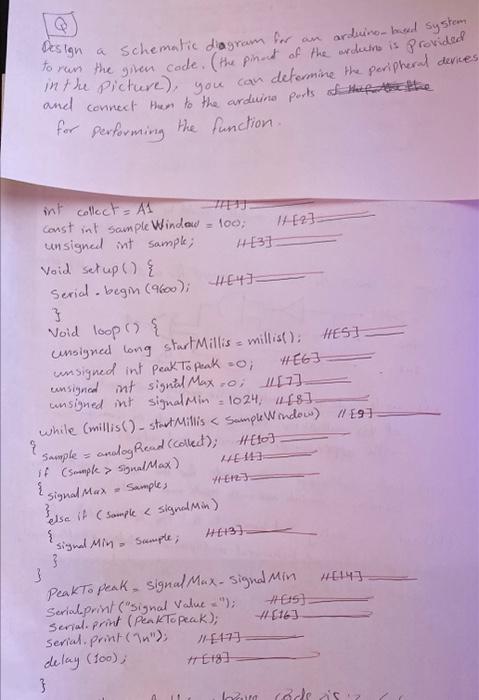 Q
Design a schematic diagram for an arduino-based system
to run the given code. (the pinout of the arduino is provided
in the picture), you can determine the peripheral devices
and connect them to the arduino ports
for performing the function.
int collect = A1 //[1]
const int sampleWindow = 100; //[2]
unsigned int sample; //[3]
Void setup() {
Serial.begin(9600); //[4]
}
Void loop() {
unsigned long startMillis = millis(); //[5]
unsigned int peakToPeak = 0; //[6]
unsigned int signalMax = 0; //[7]
unsigned int signalMin = 1024; //[8]
while (millis() - startMillis < SampleWindow) //[9]
{
sample = analogRead(collect); //[10]
if (sample > signalMax) //[11]
{
signalMax = sample; //[12]
}
else if (sample < signalMin)
{
signalMin = sample; //[13]
}
}
PeakToPeak = signalMax - signalMin //[14]
Serial.print("signal Value ="); //[15]
Serial.print(PeakToPeak); //[16]
Serial.print("\n"); //[17]
delay(100); //[18]
}